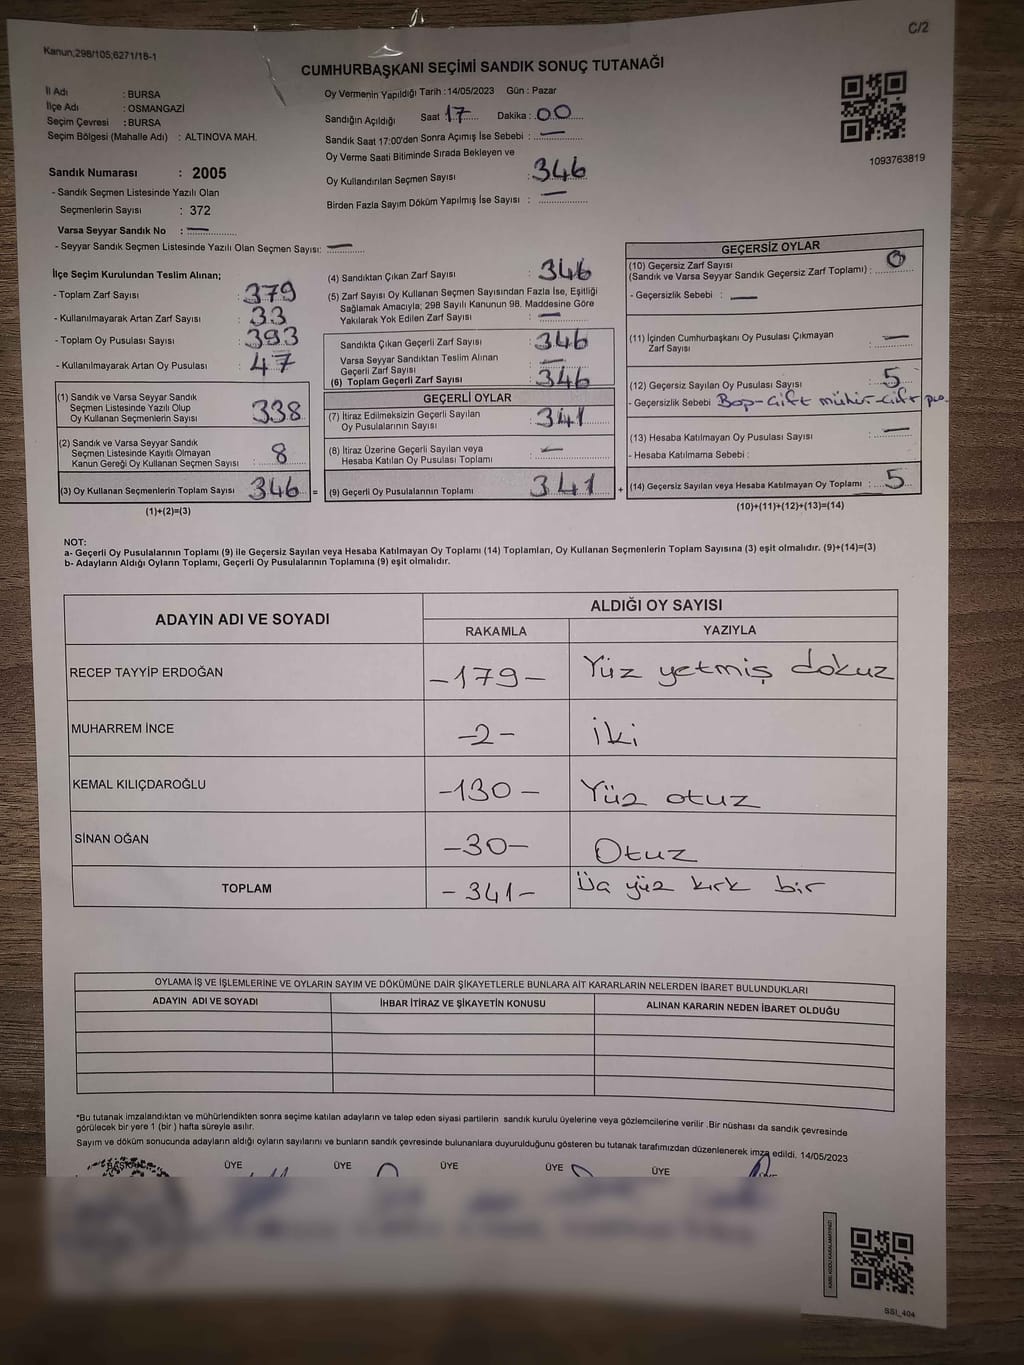 C/2
Kanun,298/105;6271/18-1
CUMHURBAŞKANI SEÇİMİ SANDIK SONUÇ TUTANAĞI
İl Adı : BURSA
İlçe Adı : OSMANGAZİ
Seçim Çevresi : BURSA
Seçim Bölgesi (Mahalle Adı) : ALTINOVA MAH.
Oy Vermenin Yapıldığı Tarih : 14/05/2023 Gün : Pazar
Sandığın Açıldığı Saat 17 Dakika : 00
Sandık Saat 17:00'den Sonra Açımış İse Sebebi : —
Oy Verme Saati Bitiminde Sırada Bekleyen ve
Oy Kullandırılan Seçmen Sayısı : 346
Birden Fazla Sayım Döküm Yapılmış İse Sayısı : —
1093763819
Sandık Numarası : 2005
- Sandık Seçmen Listesinde Yazılı Olan
Seçmenlerin Sayısı : 372
Varsa Seyyar Sandık No : —
- Seyyar Sandık Seçmen Listesinde Yazılı Olan Seçmen Sayısı: —
İlçe Seçim Kurulundan Teslim Alınan;
- Toplam Zarf Sayısı : 379
- Kullanılmayarak Artan Zarf Sayısı : 33
- Toplam Oy Pusulası Sayısı : 393
- Kullanılmayarak Artan Oy Pusulası : 47
(1) Sandık ve Varsa Seyyar Sandık
Seçmen Listesinde Yazılı Olup
Oy Kullanan Seçmenlerin Sayısı : 338
(2) Sandık ve Varsa Seyyar Sandık
Seçmen Listesinde Kayıtlı Olmayan
Kanun Gereği Oy Kullanan Seçmen Sayısı : 8
(3) Oy Kullanan Seçmenlerin Toplam Sayısı 346 =
(1)+(2)=(3)
(4) Sandıktan Çıkan Zarf Sayısı : 346
(5) Zarf Sayısı Oy Kullanan Seçmen Sayısından Fazla İse, Eşitliği
Sağlamak Amacıyla; 298 Sayılı Kanunun 98. Maddesine Göre
Yakılarak Yok Edilen Zarf Sayısı : —
Sandıkta Çıkan Geçerli Zarf Sayısı : 346
Varsa Seyyar Sandıktan Teslim Alınan
Geçerli Zarf Sayısı : —
(6) Toplam Geçerli Zarf Sayısı : 346
GEÇERLİ OYLAR
(7) İtiraz Edilmeksizin Geçerli Sayılan
Oy Pusulalarının Sayısı : 341
(8) İtiraz Üzerine Geçerli Sayılan veya
Hesaba Katılan Oy Pusulası Toplamı : —
(9) Geçerli Oy Pusulalarının Toplamı : 341 +
GEÇERSİZ OYLAR
(10) Geçersiz Zarf Sayısı
(Sandık ve Varsa Seyyar Sandık Geçersiz Zarf Toplamı) : 0
- Geçersizlik Sebebi : —
(11) İçinden Cumhurbaşkanı Oy Pusulası Çıkmayan
Zarf Sayısı : —
(12) Geçersiz Sayılan Oy Pusulası Sayısı : 5
- Geçersizlik Sebebi Boş-Çift mühür-Çift pus.
(13) Hesaba Katılmayan Oy Pusulası Sayısı : —
- Hesaba Katılmama Sebebi :
(14) Geçersiz Sayılan veya Hesaba Katılmayan Oy Toplamı : 5
(10)+(11)+(12)+(13)=(14)
NOT:
a- Geçerli Oy Pusulalarının Toplamı (9) ile Geçersiz Sayılan veya Hesaba Katılmayan Oy Toplamı (14) Toplamları, Oy Kullanan Seçmenlerin Toplam Sayısına (3) eşit olmalıdır. (9)+(14)=(3)
b- Adayların Aldığı Oyların Toplamı, Geçerli Oy Pusulalarının Toplamına (9) eşit olmalıdır.
ADAYIN ADI VE SOYADI ALDIĞI OY SAYISI
RAKAMLA YAZIYLA
RECEP TAYYİP ERDOĞAN -179- Yüz yetmiş dokuz
MUHARREM İNCE -2- İki
KEMAL KILIÇDAROĞLU -130- Yüz otuz
SİNAN OĞAN -30- Otuz
TOPLAM -341- Üç yüz kırk bir
OYLAMA İŞ VE İŞLEMLERİNE VE OYLARIN SAYIM VE DÖKÜMÜNE DAİR ŞİKAYETLERLE BUNLARA AİT KARARLARIN NELERDEN İBARET BULUNDUKLARI
ADAYIN ADI VE SOYADI İHBAR İTİRAZ VE ŞİKAYETİN KONUSU ALINAN KARARIN NEDEN İBARET OLDUĞU
*Bu tutanak imzalandıktan ve mühürlendikten sonra seçime katılan adayların ve talep eden siyasi partilerin sandık kurulu üyelerine veya gözlemcilerine verilir .Bir nüshası da sandık çevresinde
görülecek bir yere 1 (bir ) hafta süreyle asılır.
Sayım ve döküm sonucunda adayların aldığı oyların sayılarını ve bunların sandık çevresinde bulunanlara duyurulduğunu gösteren bu tutanak tarafımızdan düzenlenerek imza edildi. 14/05/2023
BAŞKAN ÜYE ÜYE ÜYE ÜYE ÜYE
SSI_404